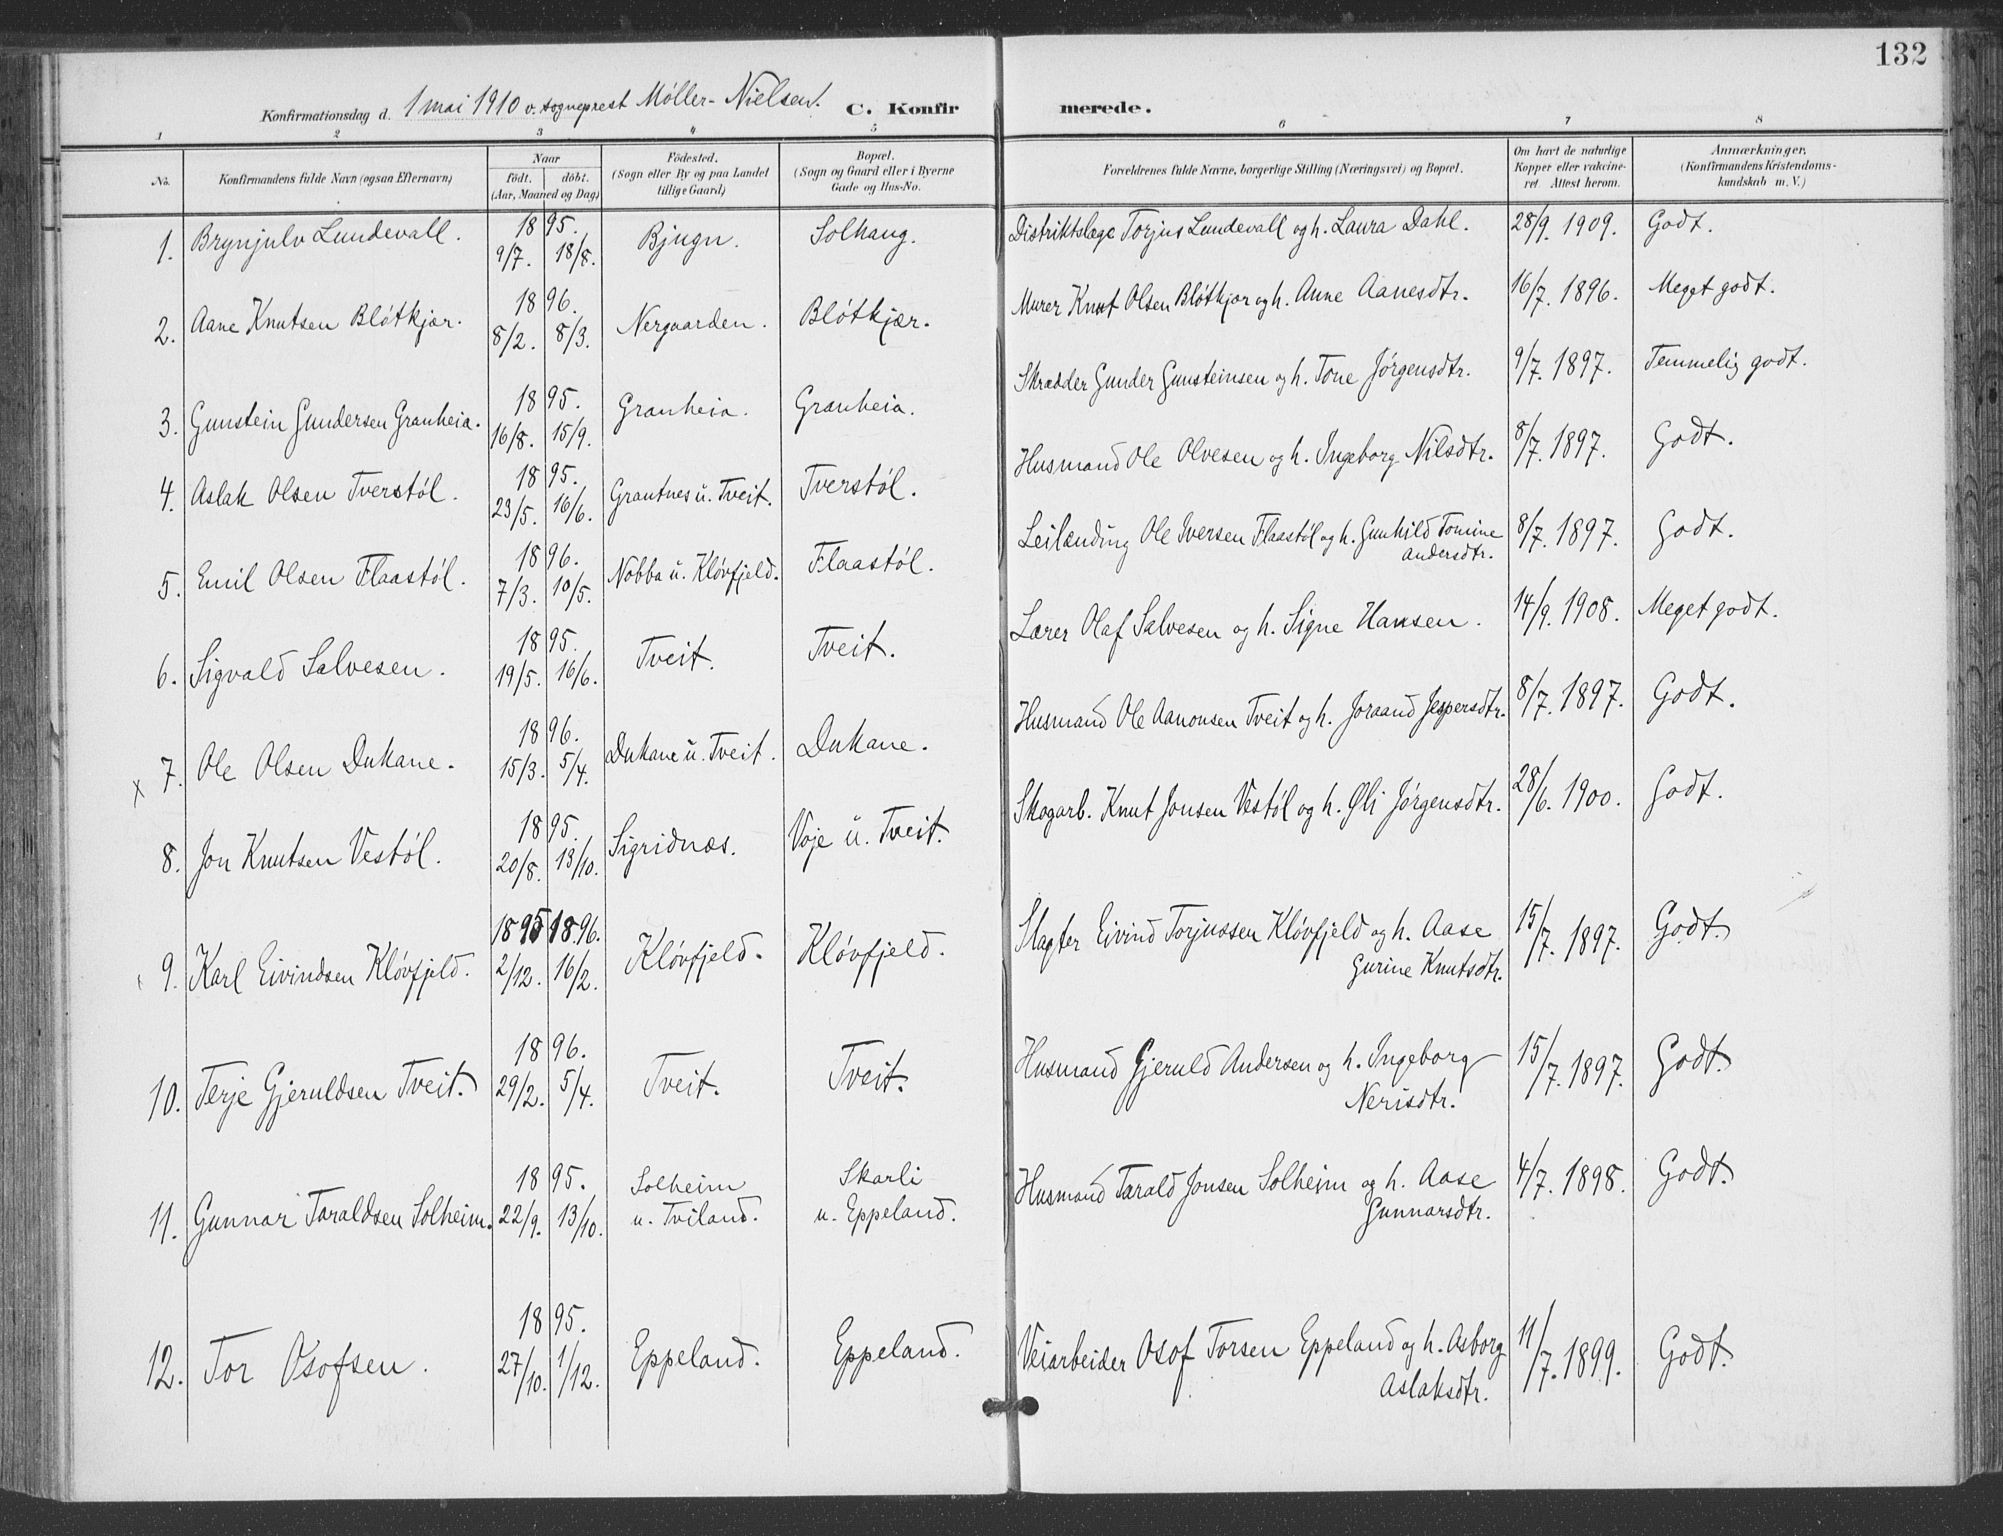 132
Konfirmationsdag d. 1 mai 1910 v. sogneprest Möller-Nielsen. C. Konfir merede.
1 2 3 4 5 6 7 8
No. Konfirmandens fulde Navn (ogsaa Efternavn) Naar födt. döbt. (Aar, Maaned og Dag) Födested. (Sogn eller By og paa Landet tillige Gaard) Bopæl. (Sogn og Gaard eller i Byerne Gade og Hus-No. Forældrenes fulde Navne, borgerlige Stilling (Næringsvei) og Bopæl. Om havt de naturlige Kopper eller vakcineret. Attest herom. Anmærkninger. (Konfirmandens Kristendomskundskab m. V.)
1. Brynjulv Lundevall. 1895. 9/7. 18/8. Bjugn. Solhaug. Distriktslæge Torjus Lundevall og h. Laura Dahl. 28/9. 1909. Godt.
2. Aane Knutsen Blötkjær. 1896. 8/2. 8/3. Nergaarden. Blötkjær. Murer Knut Olsen Blötkjær og h. Anne Aanesdtr. 16/7. 1896. Meget godt.
3. Gunstein Gundersen Granheia. 1895. 16/8. 15/9. Granheia. Granheia. Skrædder Gunder Gunsteinsen og h. Tone Jörgensdtr. 9/7. 1897. Temmelig godt.
4. Aslak Olsen Tverstöl. 1895. 23/5. 16/6. Grautnes u. Tveit. Tverstöl. Husmand Ole Olvesen og h. Ingeborg Nilsdtr. 8/7. 1897. Godt.
5. Emil Olsen Flaastöl. 1896. 7/3. 10/5. Nobba u. Klövfjeld. Flaastöl. Leilænding Ole Iversen Flaastöl og h. Gunhild Tomine Andersdtr. 8/7. 1897. Godt.
6. Sigvald Salvesen. 1895. 19/5. 16/6. Tveit. Tveit. Lærer Olaf Salvesen og h. Signe Hansen. 14/9. 1908. Meget godt.
x 7. Ole Olsen Dukane. 1896. 15/3. 5/4. Dukane u. Tveit. Dukane. Husmand Ole Aanonsen Tveit og h. Joraand Jespersdtr. 8/7. 1897. Godt.
8. Jon Knutsen Vestöl. 1895. 20/8. 13/10. Sigridnæs. Voje u. Tveit. Skogarb. Knut Jonsen Vestöl og h. Øli Jörgensdtr. 28/6. 1900. Godt.
9. Karl Eivindsen Klövfjeld. 1895 1896. 2/12. 16/2. Klövfjeld. Klövfjeld. Slagter Eivind Torjussen Klövfjeld og h. Aase Gurine Knutsdtr. 15/7. 1897. Godt.
10. Terje Gjeruldsen Tveit. 1896. 29/2. 5/4. Tveit. Tveit. Husmand Gjeruld Andersen og h. Ingeborg Nerisdtr. 15/7. 1897. Godt.
11. Gunnar Taraldsen Solheim. 1895. 22/9. 13/10. Solheim u. Tviland. Skarli u. Eppeland. Husmand Tarald Jonsen Solheim og h. Aase Gunnarsdtr. 4/7. 1898. Godt.
12. Tor Osofsen. 1895. 27/10. 1/12. Eppeland. Eppeland. Veiarbeider Osof Torsen Eppeland og h. Asborg Aslaksdtr. 11/7. 1899. Godt.